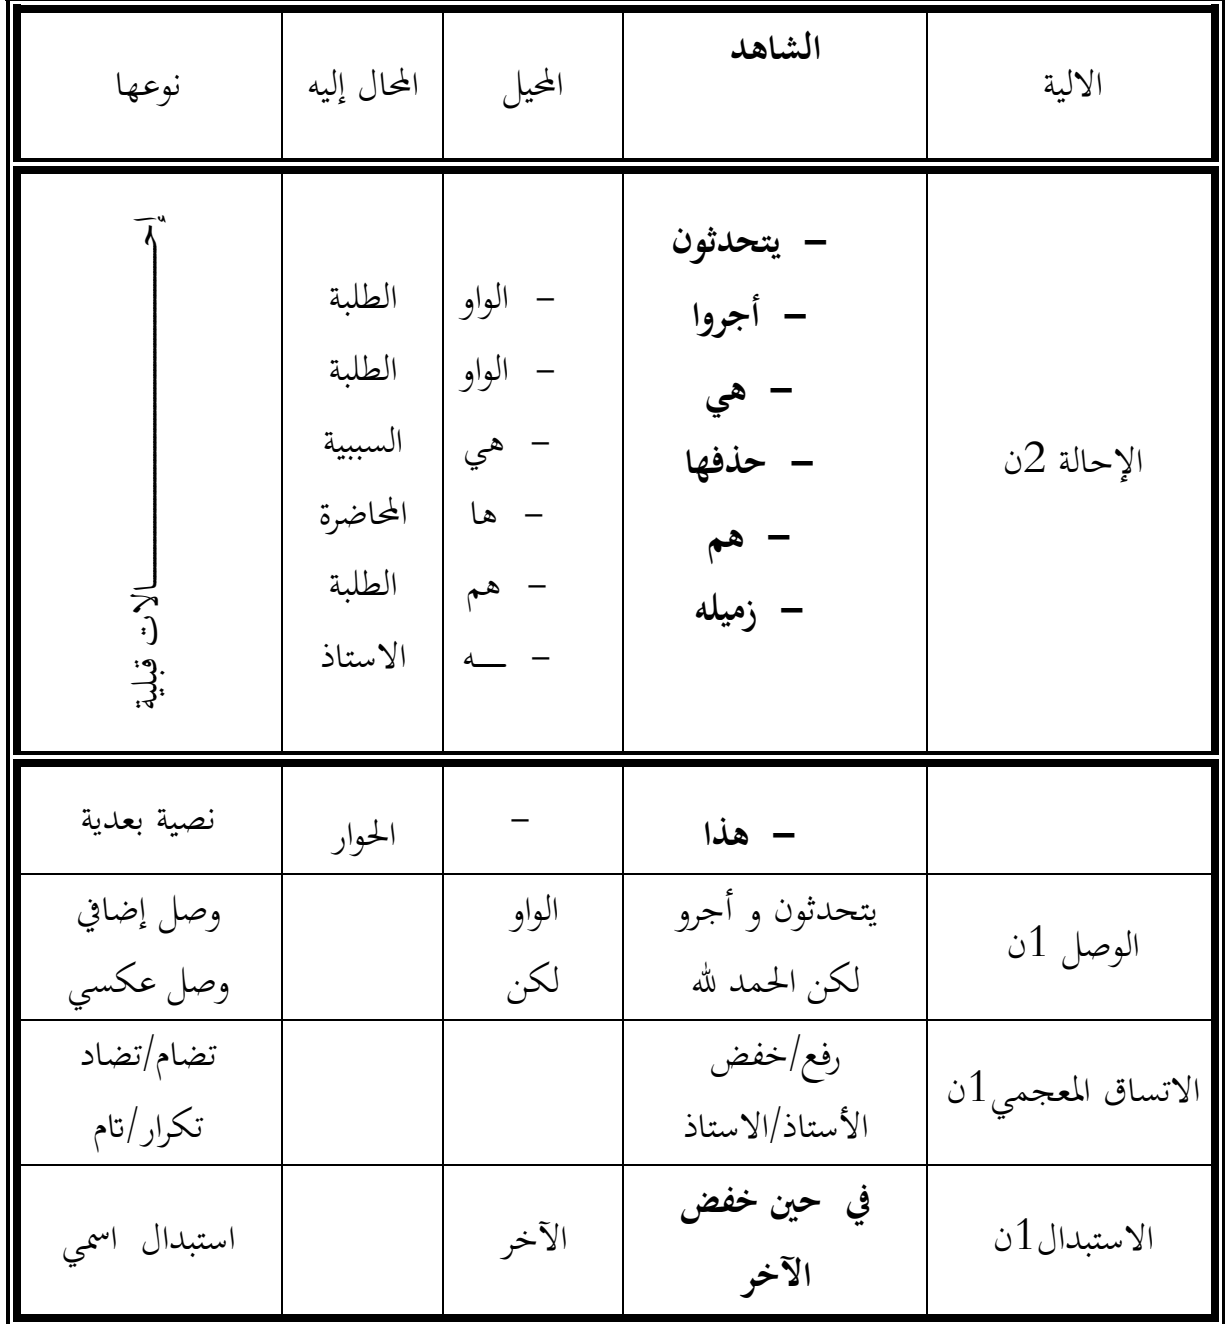 الالية الشاهد المحيل المحال إليه نوعها
الإحالة 2ن
– يتحدثون
– أجروا
– هي
– حذفها
– هم
– زميله
– الواو
– الواو
– هي
– ها
– هم
– ـــه
الطلبة
الطلبة
السببية
المحاضرة
الطلبة
الاستاذ
إحـــــــــــــــالات قبلية
– هذا – الحوار نصية بعدية
الوصل 1ن
يتحدثون و أجرو
لكن الحمد لله
الواو
لكن
وصل إضافي
وصل عكسي
الاتساق المعجمي1ن
رفع/خفض
الأستاذ/الاستاذ
تضام/تضاد
تكرار/تام
الاستبدال1ن
في حين خفض
الآخر
الآخر
استبدال اسمي